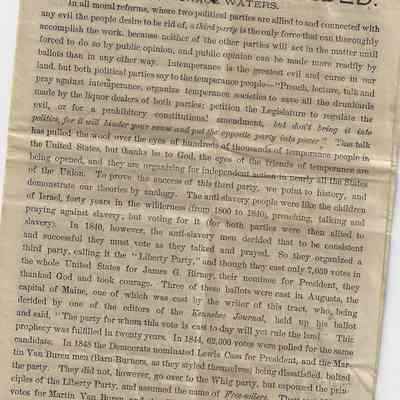 WATERS.
In all moral reforms, where two political parties are allied to and connected with
any evil the people desire to be rid of, a third party is the only force that can thoroughly
accomplish the work, because neither of the other parties will act in the matter until
forced to do so by public opinion, and public opinion can be made more readily by
ballots than in any other way. Intemperance is the greatest evil and curse in our
land, but both political parties say to the temperance people—"Preach, lecture, talk and
pray against intemperance, organize temperance societies to save all the drunkards
made by the liquor dealers of both parties; petition the Legislature to regulate the
evil, or for a prohibitory constitutional amendment, but don't bring it into
politics, for it will hinder your cause and put the opposite party into power." This talk
has pulled the wool over the eyes of hundreds of thousands of temperance people in
the United States, but thanks be to God, the eyes of the friends of temperance are
being opened, and they are organizing for independent action in nearly all the States
of the Union. To prove the success of this third party, we point to history, and
demonstrate our theories by analogy. The anti-slavery people were like the children
of Israel, forty years in the wilderness (from 1800 to 1840), preaching, talking and
praying against slavery, but voting for it (for both parties were then allied to
slavery). In 1840, however, the anti-slavery men decided that to be consistent
and successful they must vote as they talked and prayed. So they organized a
third party, calling it the "Liberty Party," and though they cast only 7,059 votes in
the whole United States for James G. Birney, their nominee for President, they
thanked God and took courage. Three of these ballots were cast in Augusta, the
capital of Maine, one of which was cast by the writer of this tract, who, being
derided by one of the editors of the Kennebec Journal, held up his ballot
and said, "The party for whom this vote is cast to-day will yet rule the land." This
prophecy was fulfilled in twenty years. In 1844, 62,000 votes were polled for the same
candidate. In 1848 the Democrats nominated Lewis Cass for President, and the Mar-
tin Van Buren men (Barn-Burners, as they styled themselves) being dissatisfied, bolted
the party. They did not, however, go over to the Whig party, but espoused the prin-
ciples of the Liberty Party, and assumed the name of Free-soilers.
votes for Martin Van Buren